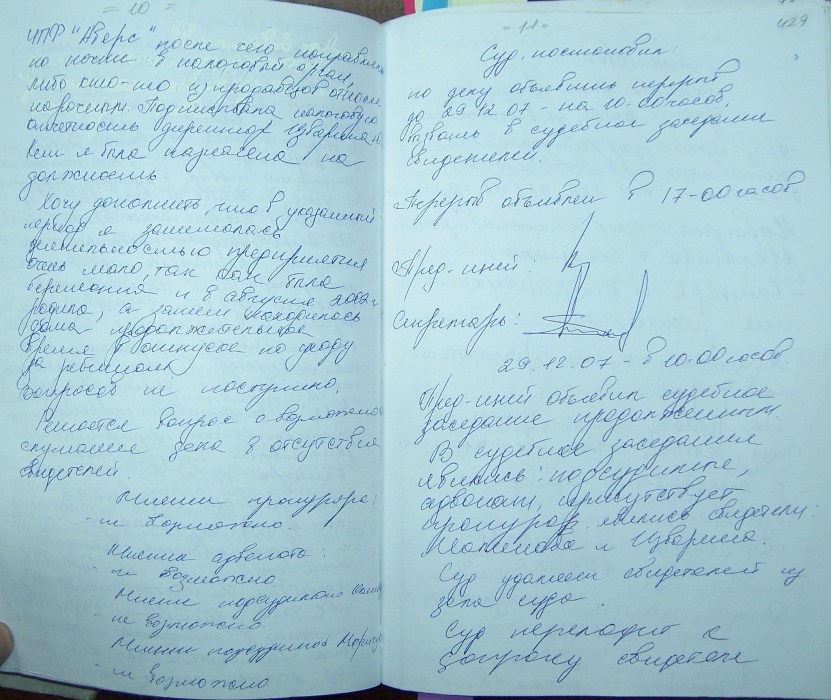 = 10 =
ЧПФ "Аверс" после чего направля
по почте в налоговый орган,
либо кто-то из продавцов относил
нарочным. Подписывала налоговую
отчетность директор Цварина
Кем я была назначена на
должность
Хочу дополнить, что в указанный
период я занималась
деятельностью предприятия
очень мало, так как была
беременна и в августе 2002г
родила, а затем находилась
дома продолжительное
время в отпуске по уходу
за ребенком
Вопросов не поступило.
Решается вопрос о возможно
слушание дела в отсутствия
свидетелей.
Мнение прокурора:
- не возможно.
Мнение адвоката:
- не возможно
Мнение подсудимого
- не возможно
Мнение подсудимой
- не возможно
- 11 -
429
Суд. постановил:
по делу объявить перерыв
до 29.12.07 - на 10-00 часов,
вызвать в судебное заседание
свидетелей.
Перерыв объявлен в 17-00 часов.
Пред-щий:
Секретарь:
29.12.07 - в 10.00 часов.
Пред-щий объявил судебное
заседание продолженным.
В судебное заседание
явились: подсудимые,
адвокат, присутствует
прокурор. явились свидетели:
и Цварина.
Суд удаляет свидетелей из
зала суда.
Суд переходит к
допросу свидетеля